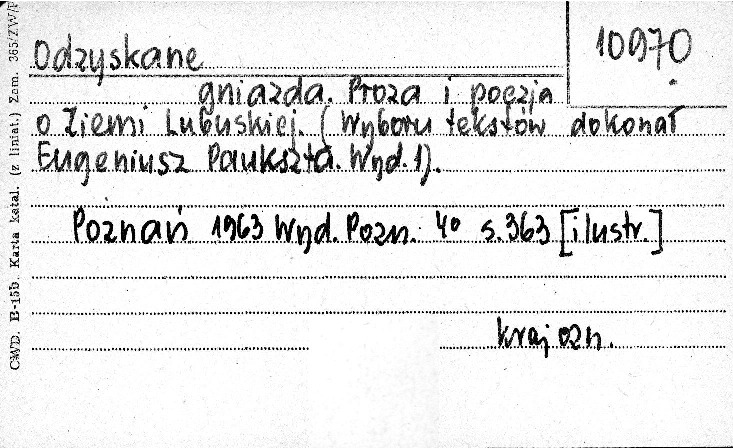 Odzyskane
10970
gniazda. Proza i poezja
o Ziemi Lubuskiej. (Wyboru tekstów dokonał
Eugeniusz Paukszta. Wyd. 1).
Poznań 1963 Wyd. Pozn. 4° s. 363 [ilustr.]
krajozn.
CWD. B-15b. Karta katal. (z liniat.) Zam. 365/ZW/